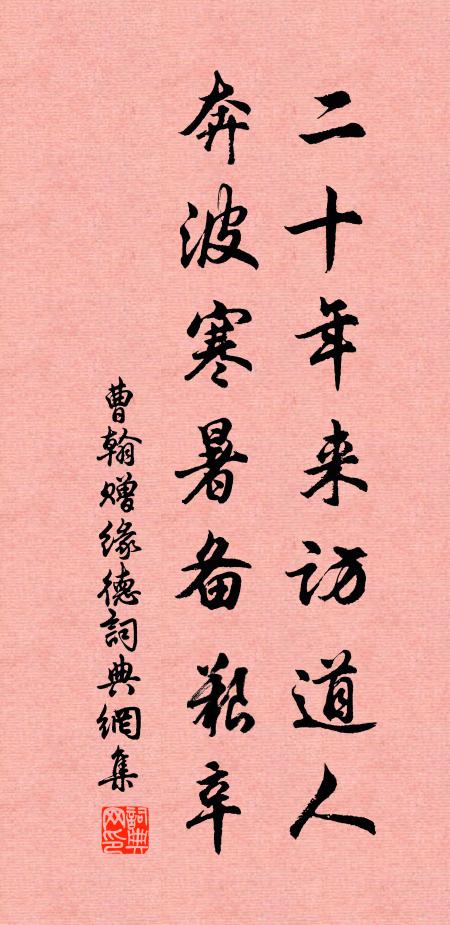 二十年来访道人
奔波寒暑备艱辛
曹翰赠缘德詞典網集
詞典网印